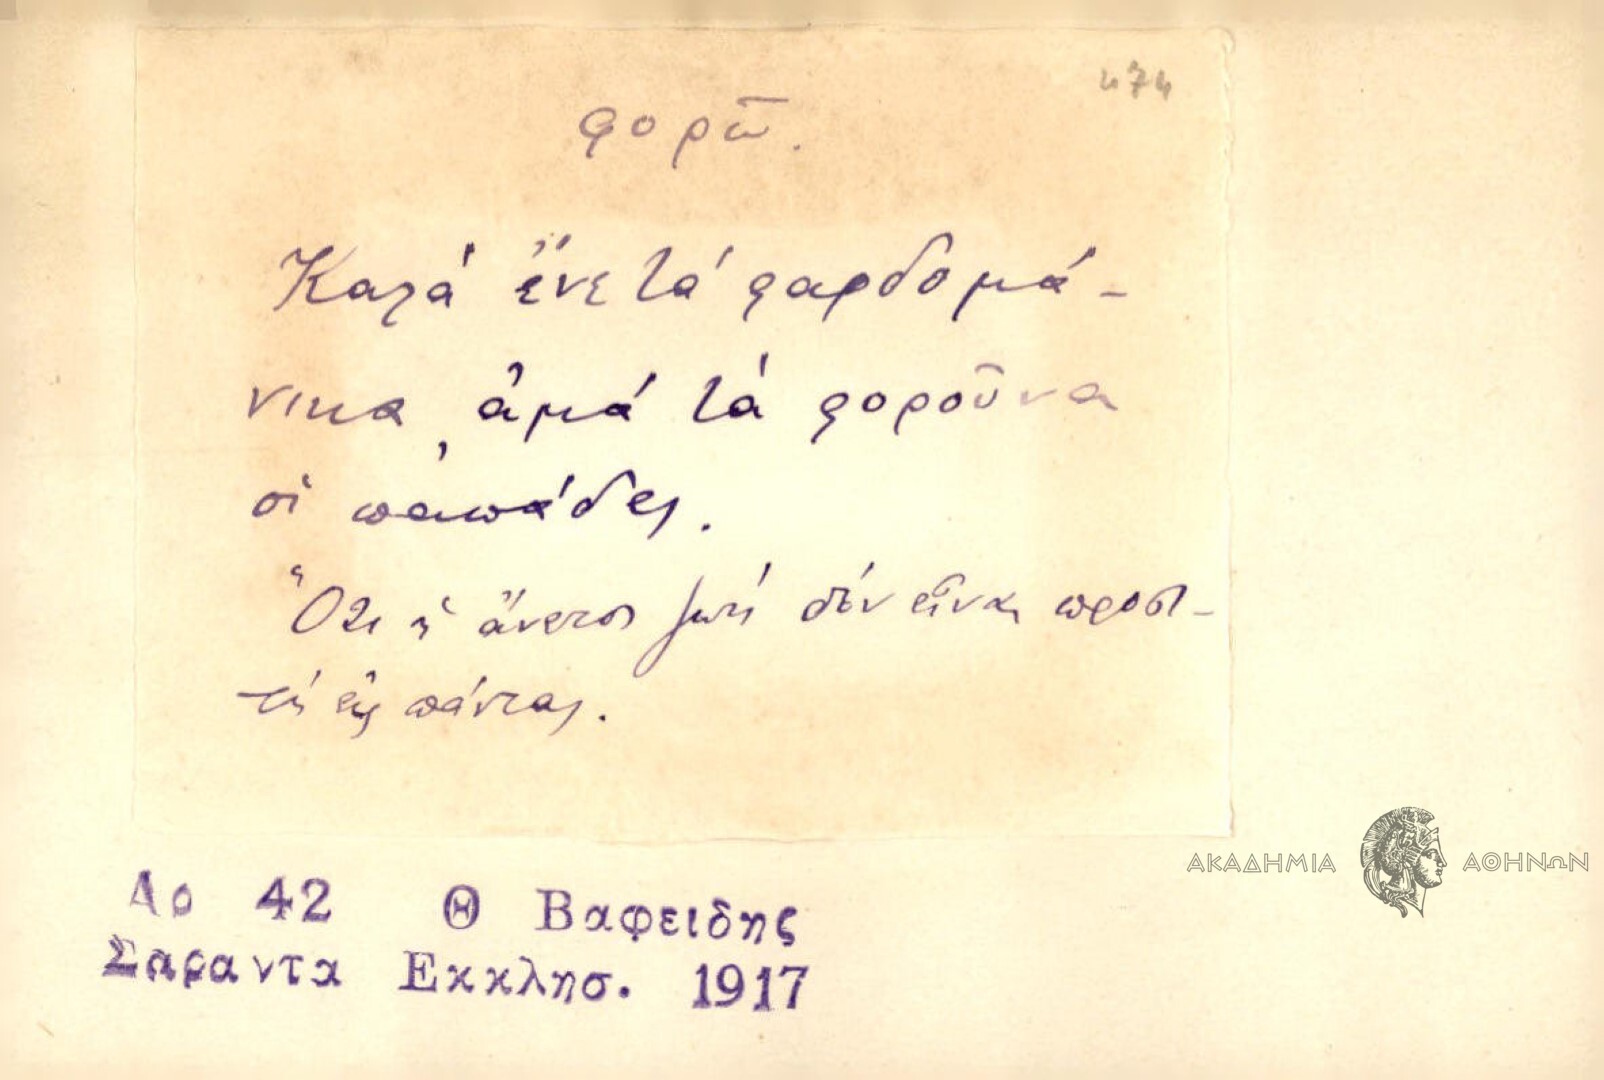 474
φορῶ.
Καλά ἔνε τά φαρδομά-
νικα, ἀμά τά φοροῦνα
οἱ παπάδες.
Ὅτι ἡ ἄνετος ζωή δέν εἶναι προσι-
τή εἰς πάντας.
Αρ 42 Θ Βαφειδης
Σαραντα Εκκλησ. 1917
ΑΚΑΔΗΜΙΑ ΑΘΗΝΩΝ